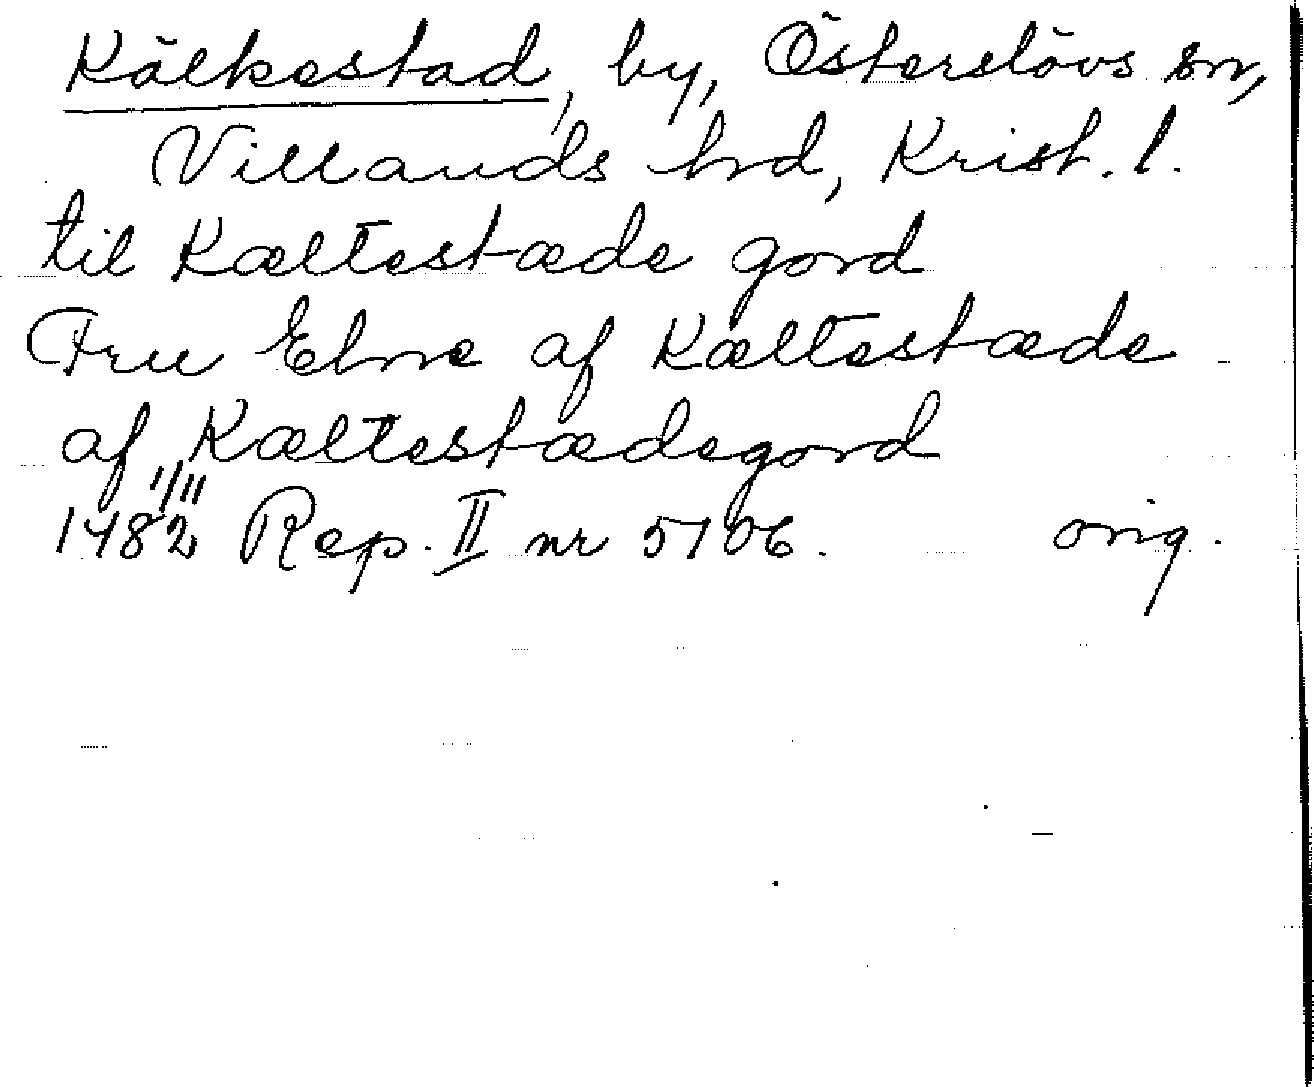 Kälkestad, by, Österslövs sn,
Villands hrd, Krist. l.
til Kæltestæde gord
Fru Elne af Kæltestæde
af Kæltestædegord
1/11
1482 Rep. II nr 5106. orig.